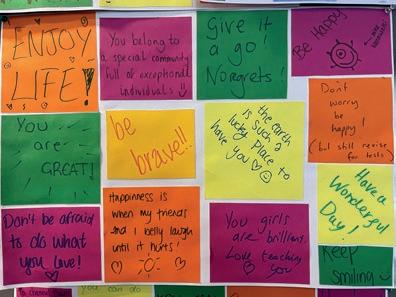 ENJOY
LIFE!
You belong to
a special community
full of exceptional
individuals
Give it
a go!
Norgrets!
Be Happy
You
are
GREAT!
be
brave!!
the earth
is such a
lucky place to
have you
Don't
worry
be
happy!
(but still revise
for tests)
Have a
Wonderful
Day!
Don't be afraid
to do what
you love!
Happiness is
when my friends
and I belly laugh
until it hurts!
You girls
are brilliant.
Love teaching
you
Keep
smiling
you can do